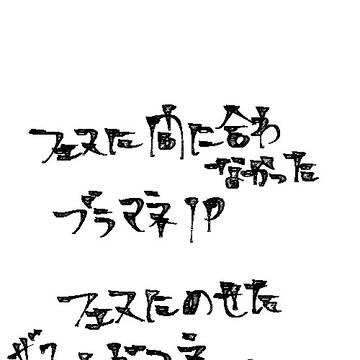 フェスに間に合わ
なかった
プラマネ1P
フェスにのせた